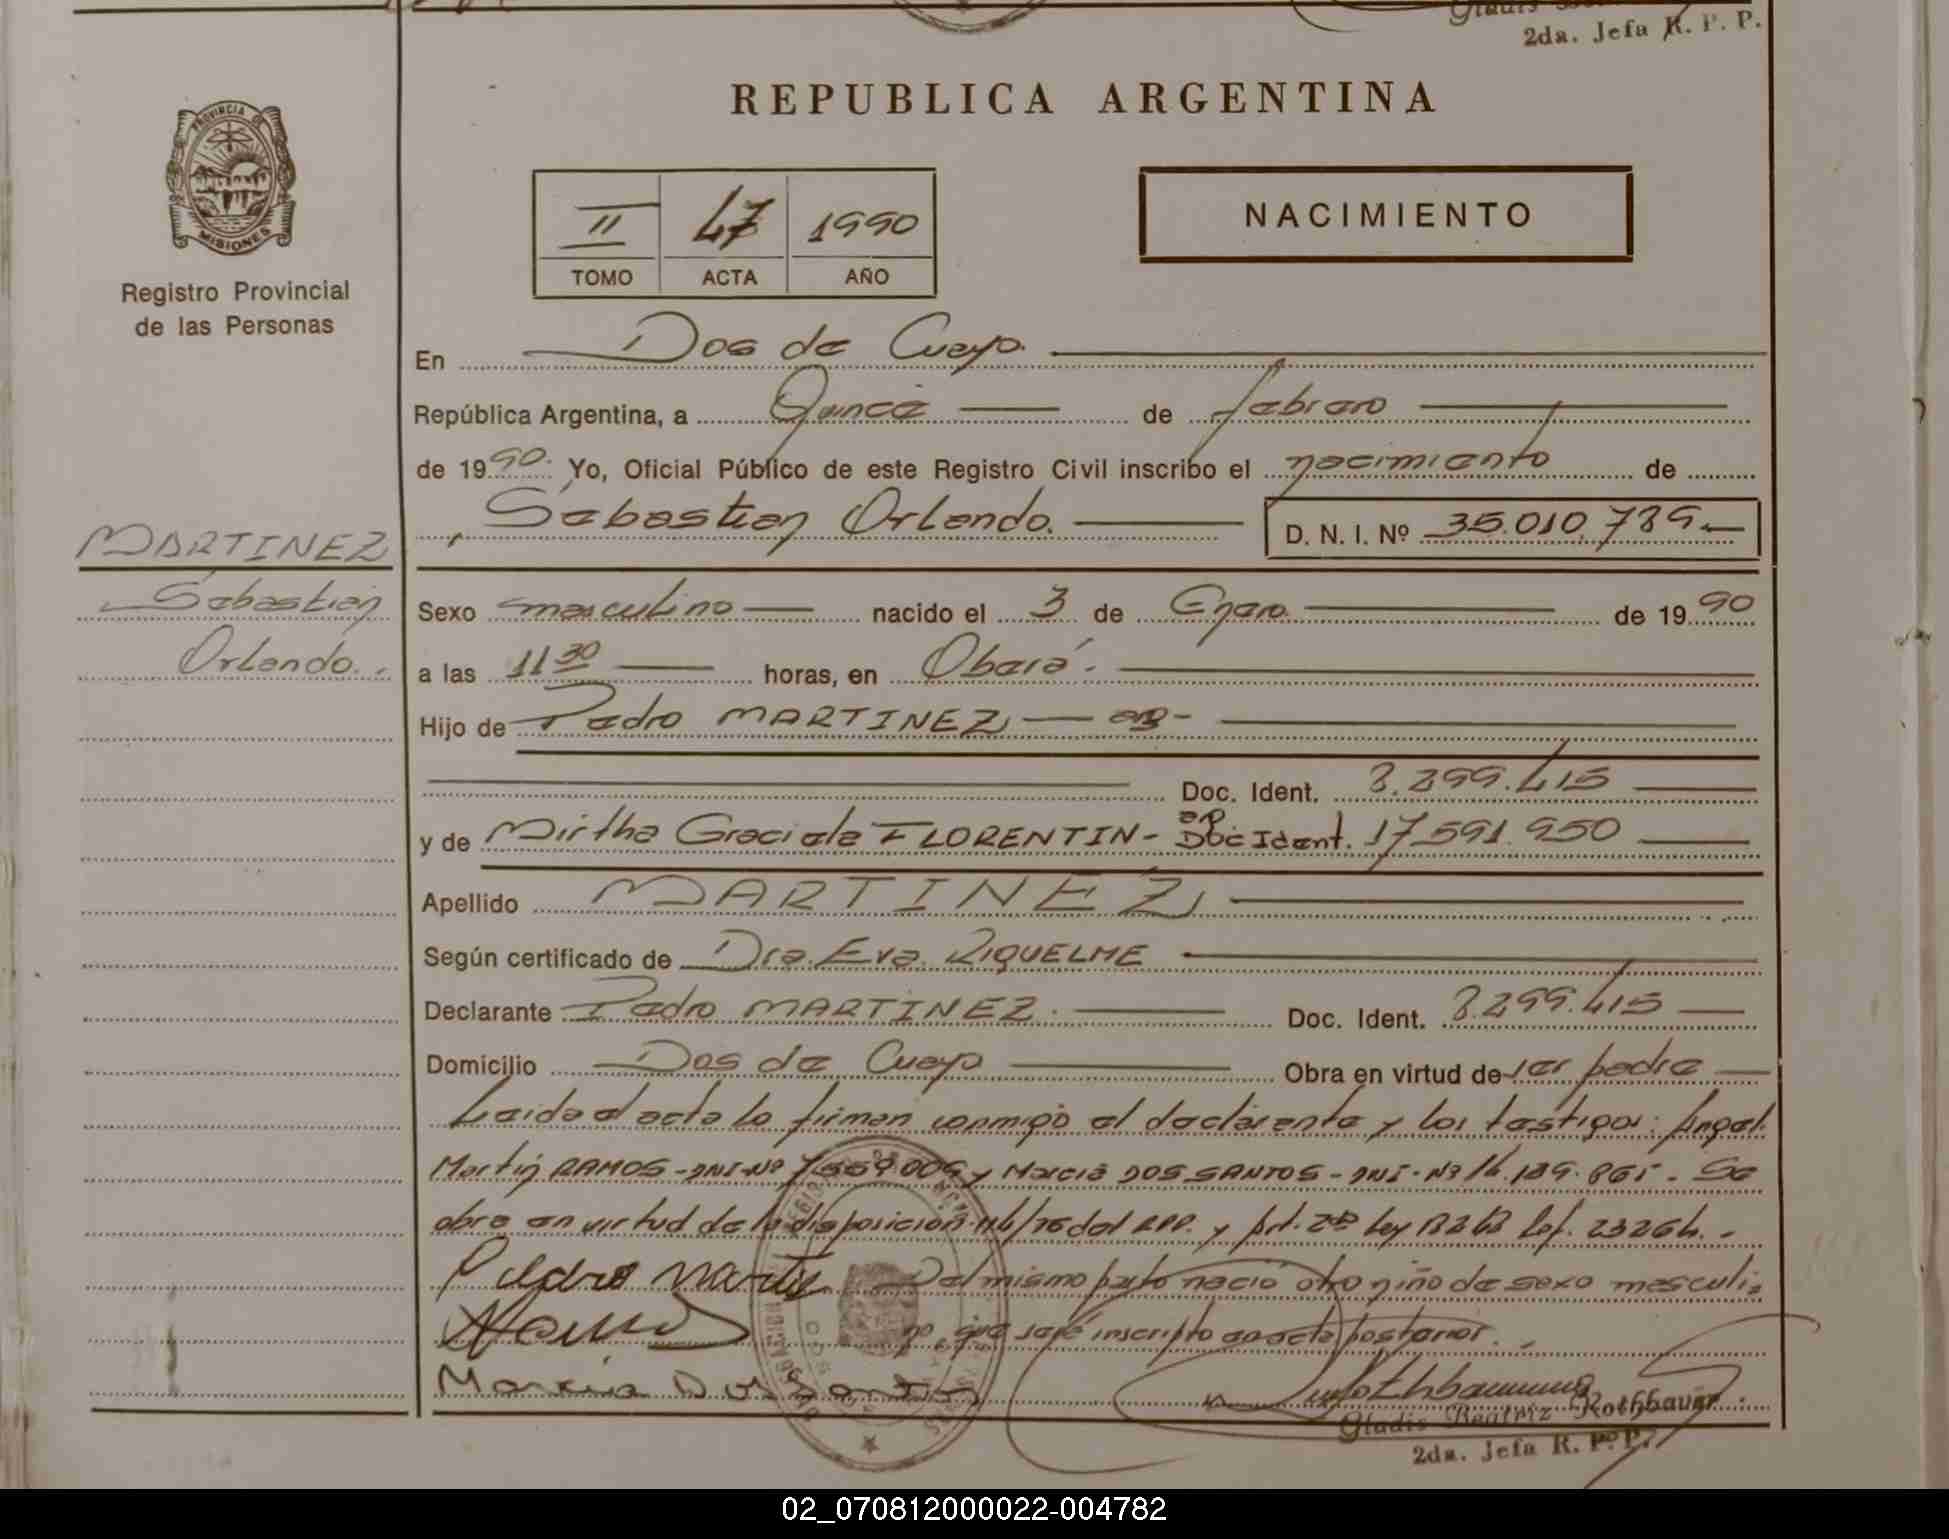 2da. Jefa R. P. P.
REPUBLICA ARGENTINA
PROVINCIA DE
MISIONES
Registro Provincial
de las Personas
II 47 1990
TOMO ACTA AÑO
NACIMIENTO
En Dos de Cuayo.
República Argentina, a Quince de febrero
de 1990. Yo, Oficial Público de este Registro Civil inscribo el nacimiento de
Sebastian Orlando. D. N. I. Nº 35.010.789
MARTINEZ
Sebastian
Orlando.
Sexo masculino nacido el 3 de Enero de 1990
a las 11 30 horas, en Oberá.
Hijo de Pedro MARTINEZ
Doc. Ident. 8.299.415
y de Mirtha Graciela FLORENTIN - Doc Ident. 17.591.950
Apellido MARTINEZ
Según certificado de Dra. Eva RIQUELME
Declarante Pedro MARTINEZ. Doc. Ident. 8.299.415
Domicilio Dos de Cuayo Obra en virtud de ser padre
Leida el acta lo firman conmigo el declarante y los testigos: Angel
Martin RAMOS - DNI - Nº y Marcia DOS SANTOS - DNI - Nº 16.189.865 - Se
obra en virtud de la disposicion 116/76 del RPP. y Art. Ley Lef. 23264. -
Pedro Martis Del mismo parto nació otro niño de sexo masculi=
no, que será inscripto en acta posterior.
Marcia Dos Santos
Gladis Beatriz Rothbauer
2da. Jefa R. P. P.
02_070812000022-004782